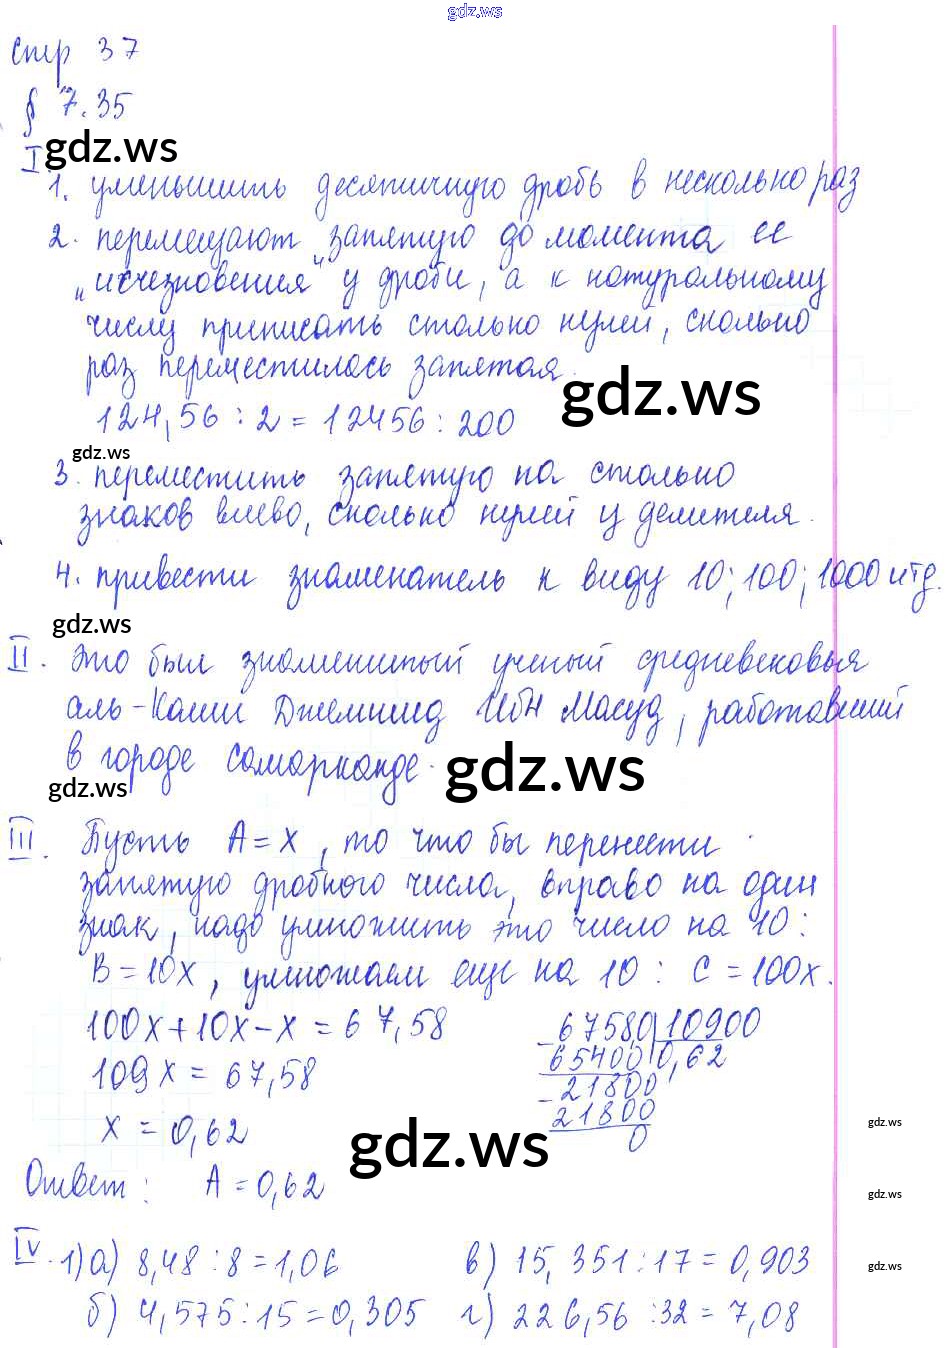 gdz.ws
стр 37
§ 7.35
gdz.ws
I.
1. уменьшить десятичную дробь в несколько раз
2. перемещают запятую до момента ее
„исчезновения" у дроби, а к натуральному
числу приписать столько нулей, сколько
раз переместилась запятая.
gdz.ws
124,56 : 2 = 12456 : 200
gdz.ws
3. переместить запятую на столько
знаков влево, сколько нулей у делителя.
4. привести знаменатель к виду 10; 100; 1000 итд.
gdz.ws
II. Это был знаменитый ученый средневековья
аль-Каши Джемшид Ибн Масуд, работавший
в городе Самарканде.
gdz.ws
gdz.ws
III. Пусть A = x, то что бы перенести
запятую дробного числа, вправо на один
знак, надо умножить это число на 10:
B = 10x, умножаем еще на 10: C = 100x.
100x + 10x - x = 67,58
109x = 67,58
x = 0,62
67580 10900
65400 0,62
21800
21800
0
gdz.ws
gdz.ws
Ответ: A = 0,62
gdz.ws
IV. 1) а) 8,48 : 8 = 1,06 в) 15,351 : 17 = 0,903
gdz.ws
б) 4,575 : 15 = 0,305 г) 226,56 : 32 = 7,08